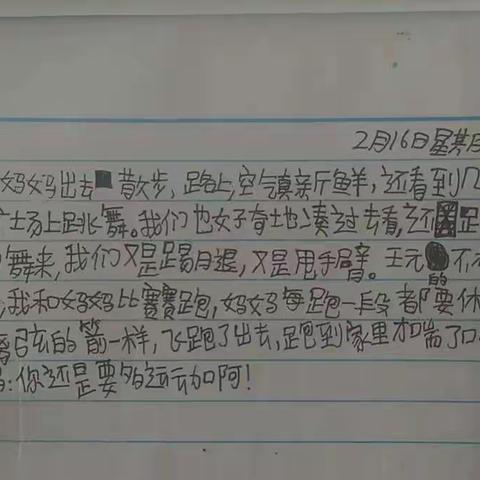 2月16日星期
妈妈出去散步,路上,空气真新鲜,还看到几
广场上跳舞。我们也好奇地凑过去看,还
舞来,我们又是踢腿,又是甩手臂。玩的不
,我和妈妈比赛跑,妈妈每跑一段都要休
离弦的箭一样,飞跑了出去,跑到家里才喘了口
:你还是要多运动啊!